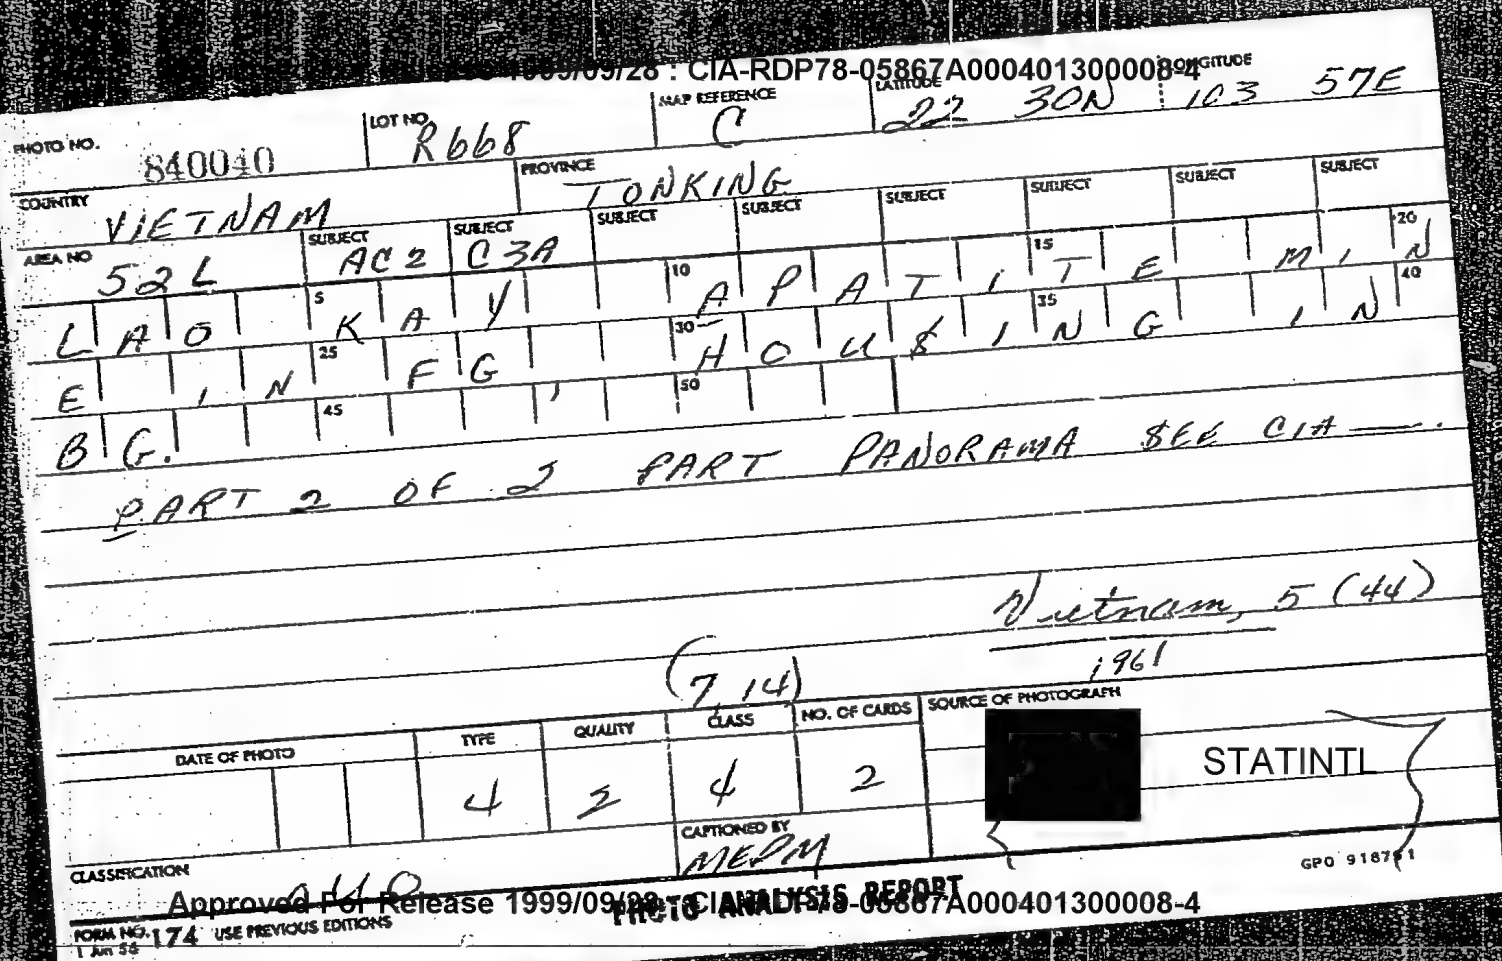 1999/09/28 : CIA-RDP78-05867A000401300008-4
PHOTO NO. 840040 LOT NO. R668 MAP REFERENCE C LATITUDE 22 30N LONGITUDE 103 57E
COUNTRY VIETNAM PROVINCE TONKING
AREA NO 52L SUBJECT AC2 SUBJECT C3A SUBJECT SUBJECT SUBJECT SUBJECT SUBJECT SUBJECT
5 10 15 20
LAO KAY APATITE MIN
25 30 35 40
E IN FG, HOUSING IN
45 50
BG.
PART 2 OF 2 PART PANORAMA SEE CIA —.
Vietnam, 5 (44)
1961
(7,14)
DATE OF PHOTO TYPE QUALITY CLASS NO. OF CARDS SOURCE OF PHOTOGRAPH
4 2 4 2 STATINTL
CAPTIONED BY
MEPM
CLASSIFICATION
GPO 918751
PHOTO ANALYSIS REPORT
Approved For Release 1999/09/28 : CIA-RDP78-05867A000401300008-4
FORM NO. 174 USE PREVIOUS EDITIONS
1 Jun 56